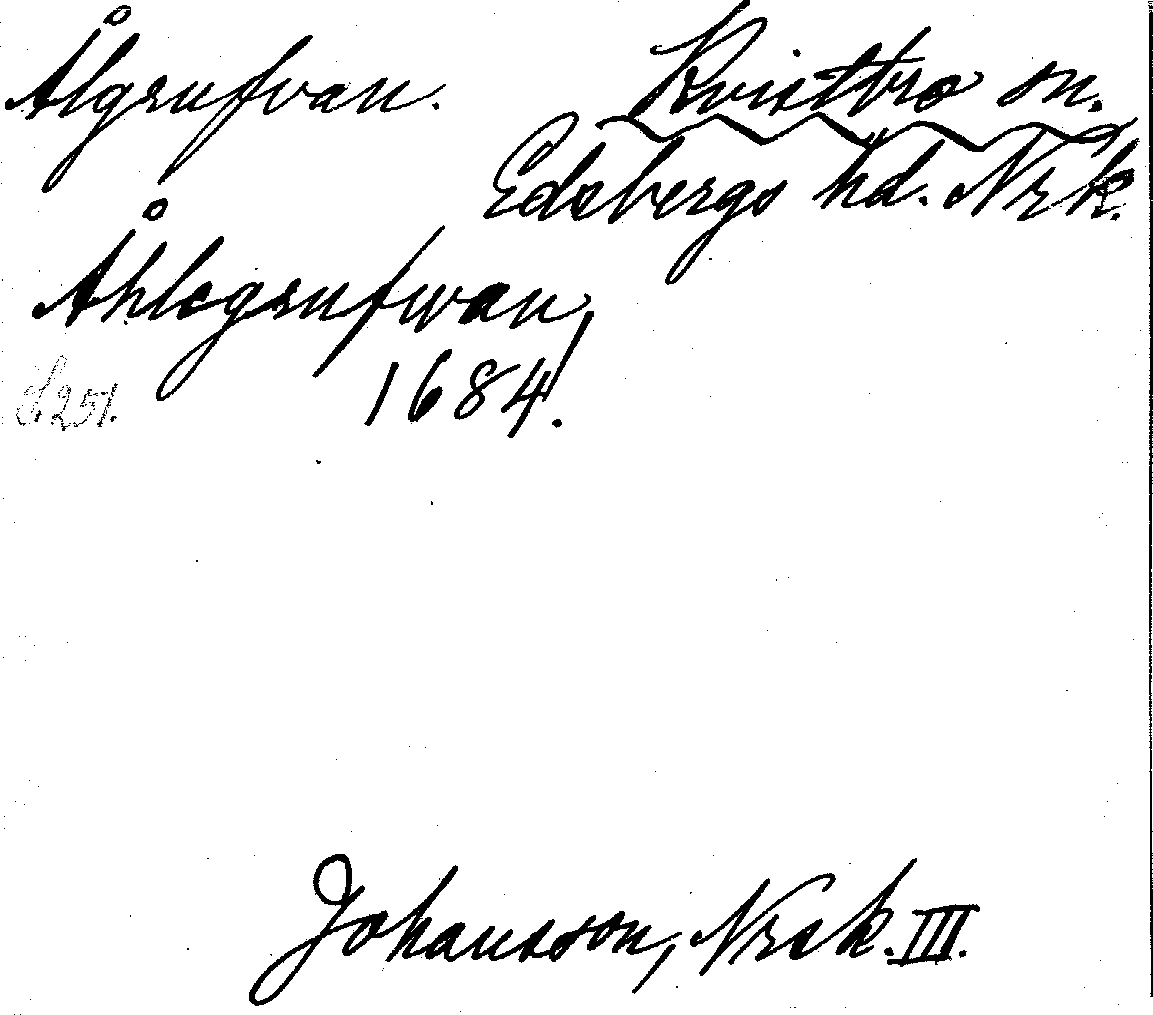 Ålgrufvan. Kvistbro sn.
Edsbergs hd. Nrk.
Åhlegrufwan,
1684.
S. 251.
Johansson, Nrsk. III.